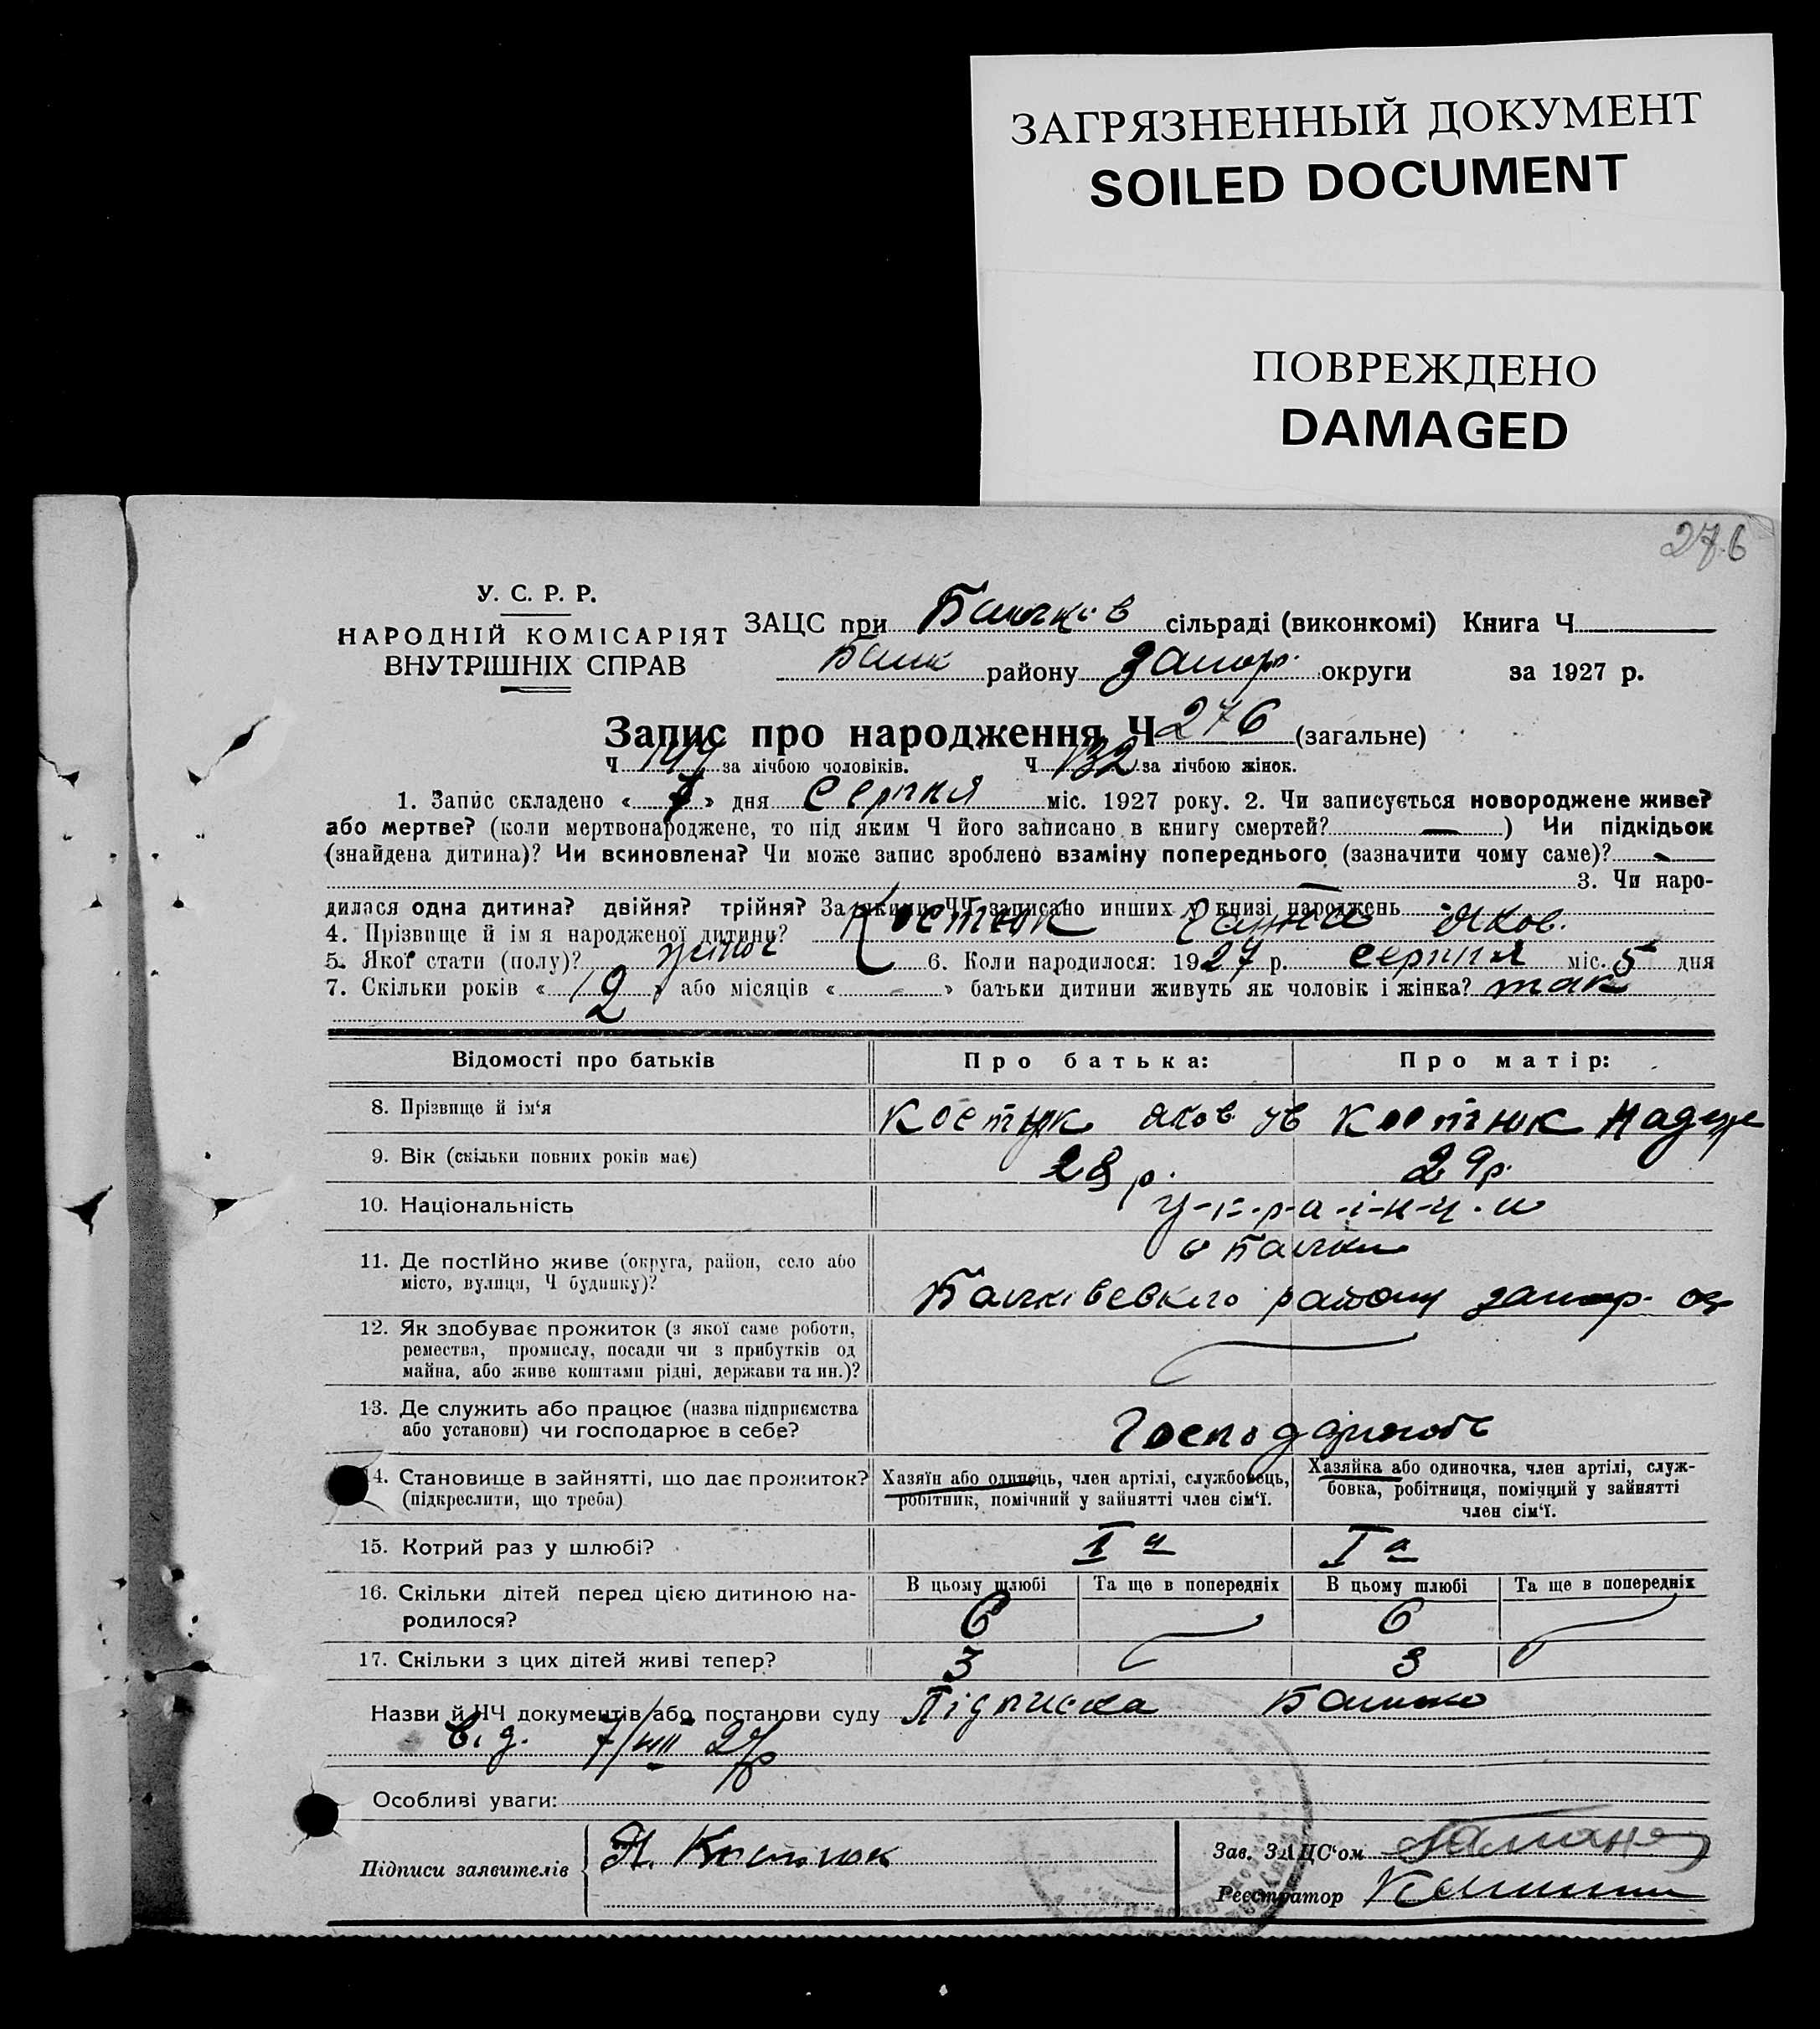 ЗАГРЯЗНЕННЫЙ ДОКУМЕНТ
SOILED DOCUMENT
ПОВРЕЖДЕНО
DAMAGED
276
У. С. Р. Р.
НАРОДНІЙ КОМІСАРІЯТ
ВНУТРІШНІХ СПРАВ
ЗАЦС при сільраді (виконкомі) Книга Ч
району Запор. округи за 1927 р.
Запис про народження Ч 276 (загальне)
Ч 144 за лічбою чоловіків. Ч 132 за лічбою жінок.
1. Запис складено « 7 » дня Серпня міс. 1927 року. 2. Чи записується новороджене живе?
або мертве? (коли мертвонароджене, то під яким Ч його записано в книгу смертей? — ) Чи підкідьок
(знайдена дитина)? Чи всиновлена? Чи може запис зроблено взаміну попереднього (зазначити чому саме)?
3. Чи наро-
дилася одна дитина? двійня? трійня? За якими ЧЧ записано инших у книзі народжень
4. Прізвище й ім я народженої дитини? Костюк Ганна Яков.
5. Якої стати (полу)? жіноч 6. Коли народилося: 1927 р. серпня міс. 5 дня
7. Скільки років « » або місяців « » батьки дитини живуть як чоловік і жінка? так
Відомості про батьків
Про батька:
Про матір:
8. Прізвище й ім‘я
Костюк Яков Ів
Костюк Надежд
9. Вік (скільки повних років має)
28 р.
29 р.
10. Національність
у-к-р-а-ї-н-ц-и
11. Де постІйно живе (округа, район, село або
місто, вулиця, Ч будинку)?
с Балки
Балківського району Запор. ок
12. Як здобуває прожиток (з якої саме роботи,
ремества, промислу, посади чи з прибутків од
майна, або живе коштами рідні, держави та ин.)?
13. Де служить або працює (назва підприємства
або установи) чи господарює в себе?
Господарюють
14. Становище в зайнятті, що дає прожиток?
(підкреслити, що треба)
Хазяїн або одинець, член артілі, службовець,
робітник, помічний у зайнятті член сім‘ї.
Хазяйка або одиночка, член артілі, служ-
бовка, робітниця, помічний у зайнятті
член сім‘ї.
15. Котрий раз у шлюбі?
І й
І й
16. Скільки дітей перед цією дитиною на-
родилося?
В цьому шлюбі
Та ще в попередніх
В цьому шлюбі
Та ще в попередніх
6
6
17. Скільки з цих дітей живі тепер?
3
3
Назви й ЧЧ документів або постанови суду Підписка
7/VIII 27р
Особливі уваги:
Підписи заявителів
Я. Костюк
Зав. ЗАЦС‘ом
Реєстратор